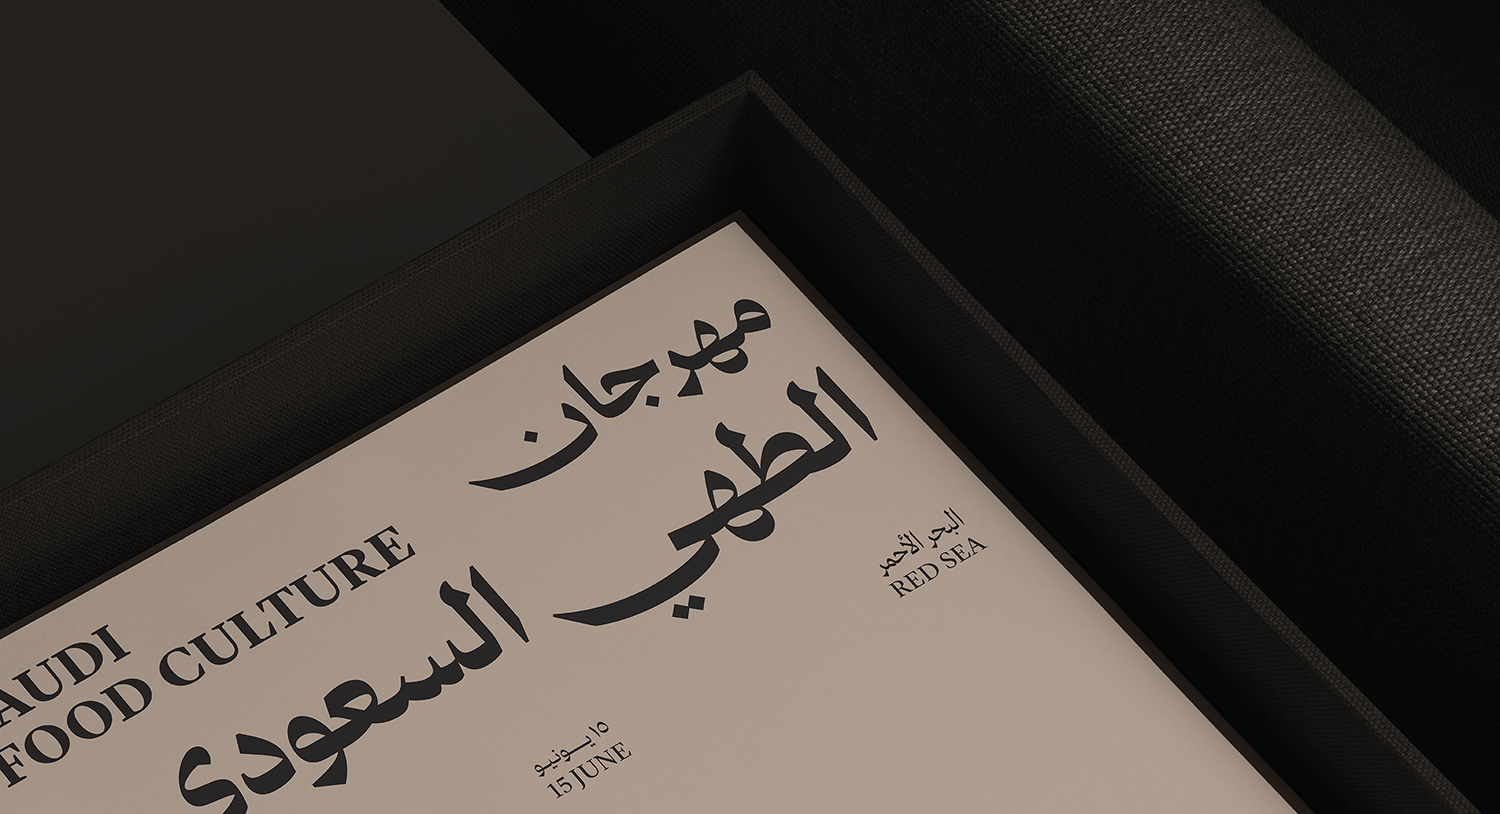 مهرجان
الطهي
السعودي
AUDI
FOOD CULTURE
البحر الأحمر
RED SEA
١٥ يونيو
15 JUNE